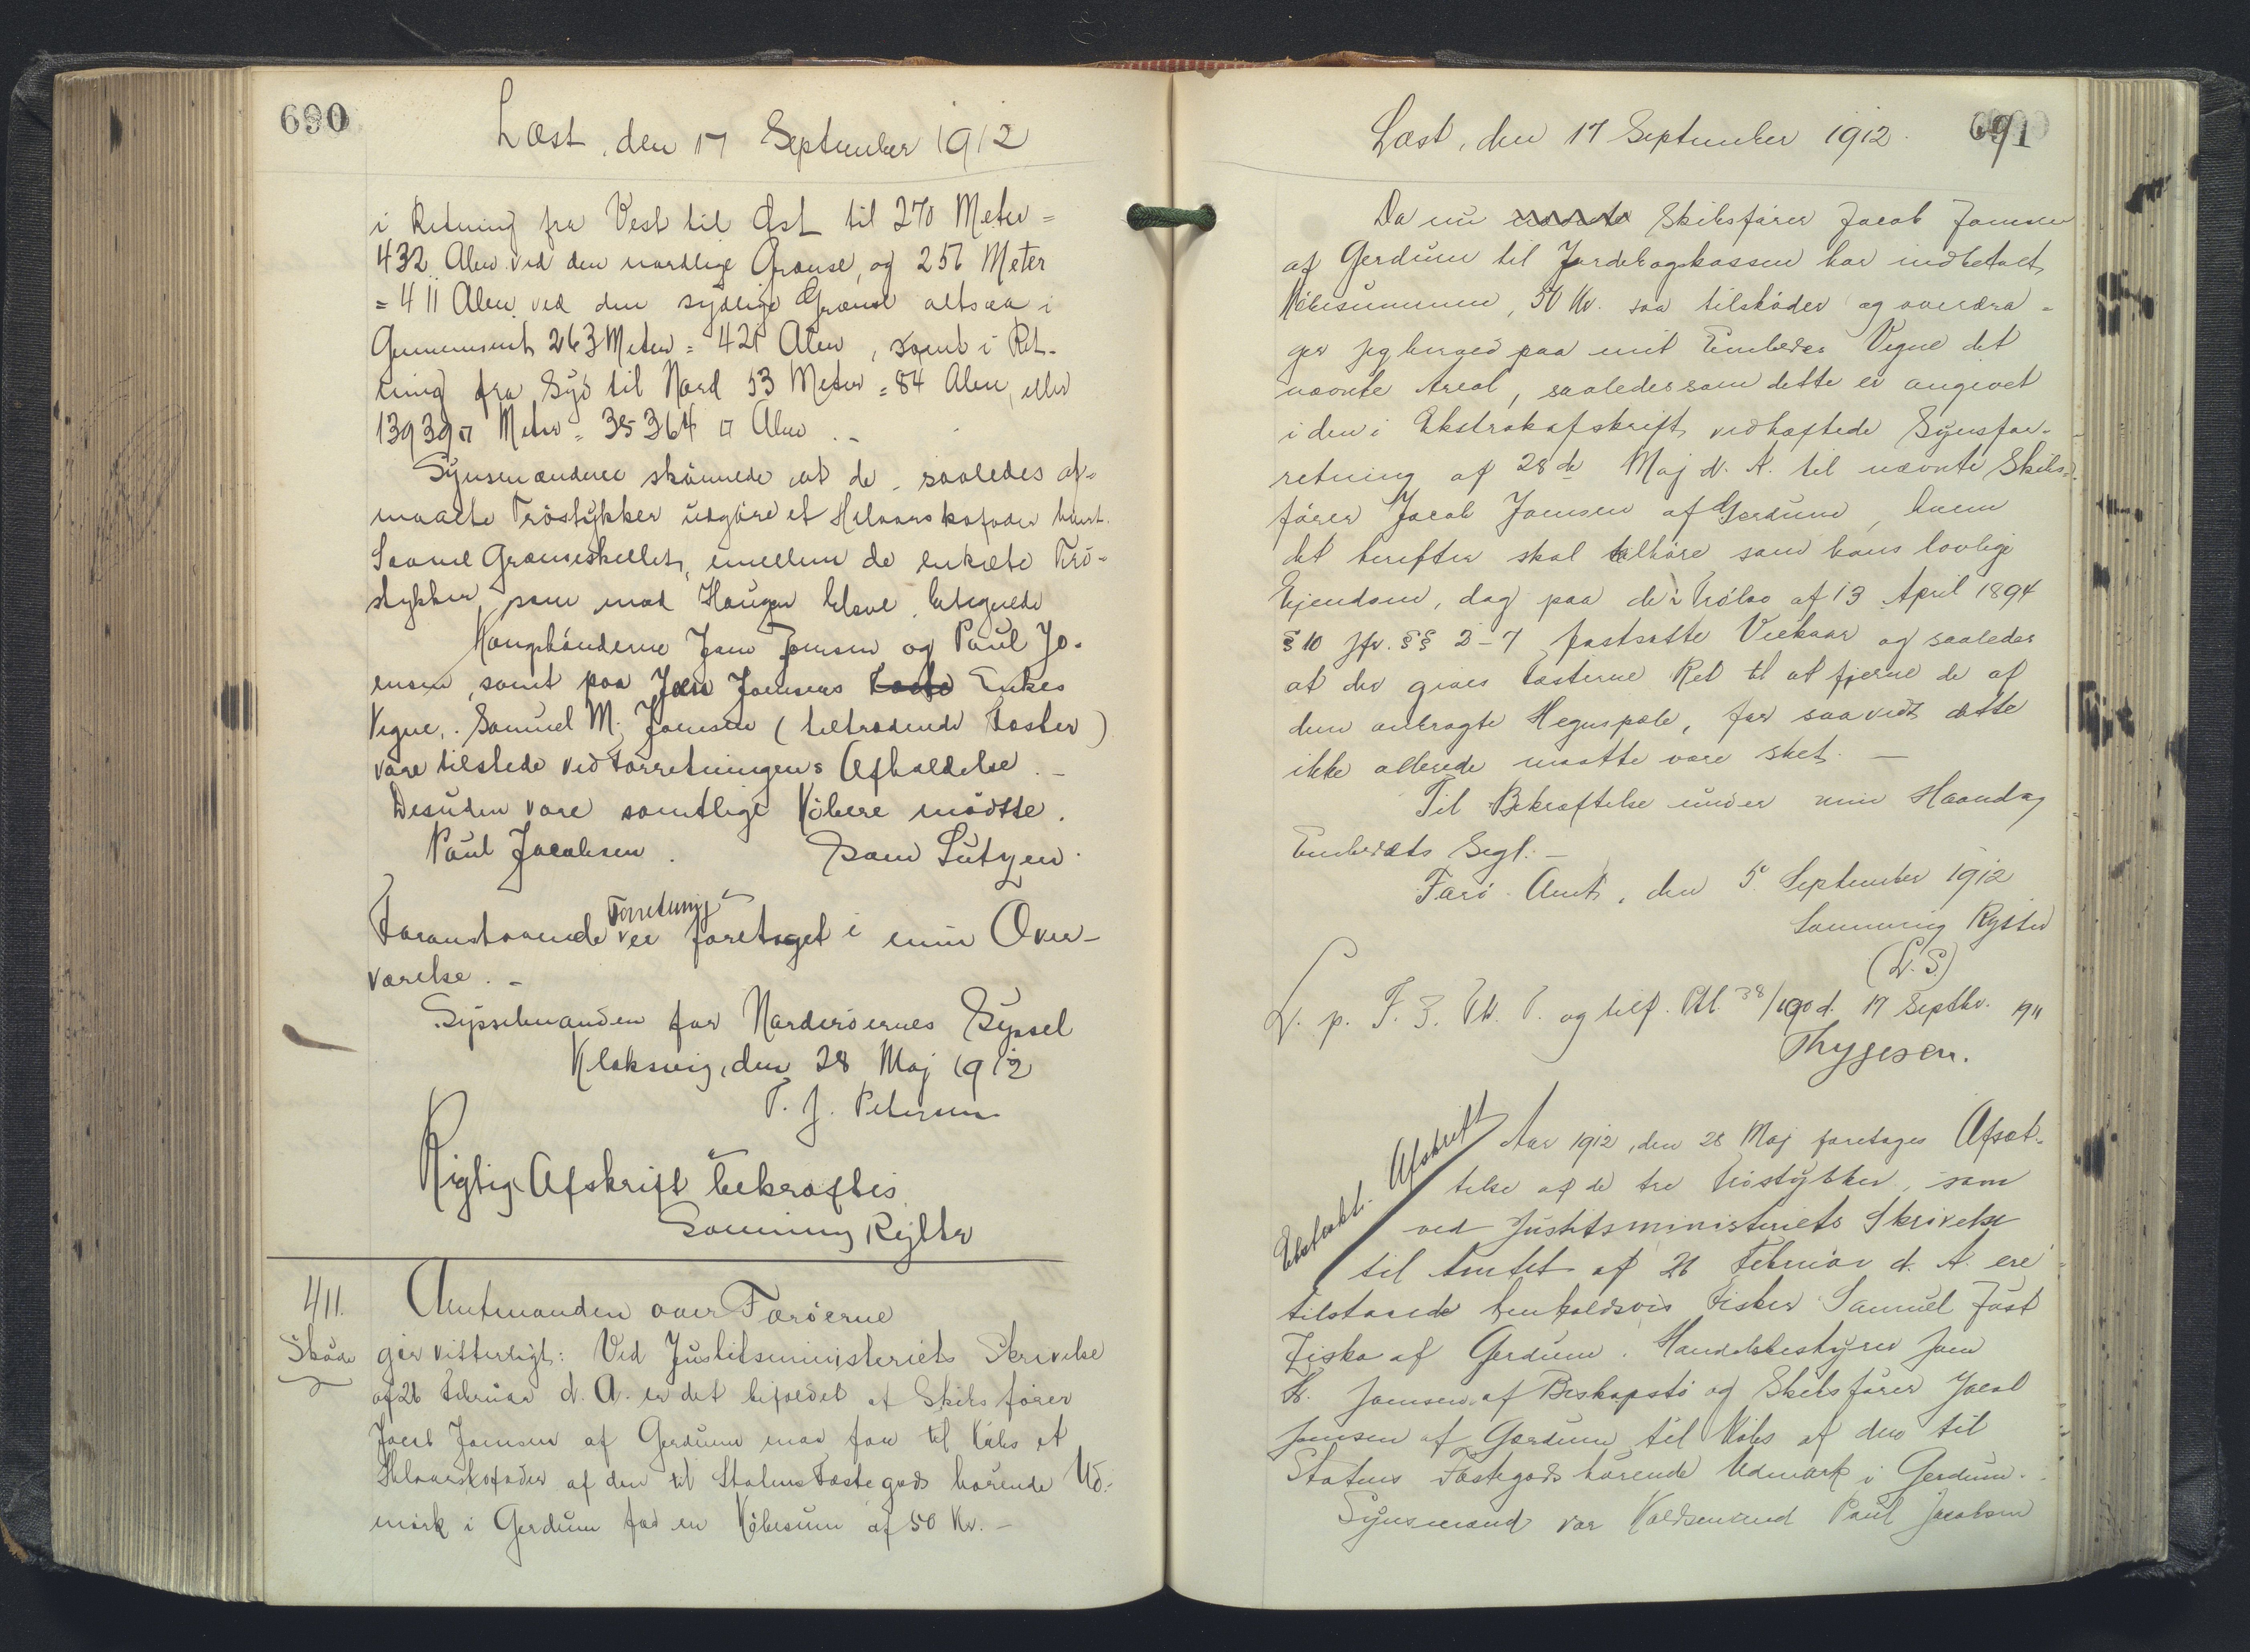 690
Læst, den 17 September 1912
i Retning fra Vest til Øst til 270 Meter =
432 Alen ved den nordlige Grænse, og 257 Meter
= 411 Alen ved den sydlige Grænse altsaa i
Gennemsnit 263 Meter = 421 Alen, samt i Ret-
ning fra Syd til Nord 53 Meter = 84 Alen, eller
13939 □ Meter = 35364 □ Alen. -
Synsmændene skönnede at de saaledes af-
maalte Tröstykker udgöre et Helaarskofoder hvert.
Saavel Grænseskellet, imellem de enkelte Trö-
stykker, som mod Haugen bleve betegnede
Kongsbönderne Joen Joensen og Paul Jo-
ensen, samt paa Joen Joensens Enkes
Vegne, Samuel M. Joensen (tiltrædende Fæster)
vare tilstede ved Forretningens Afholdelse. -
Desuden vare samtlige Köbere mödte.
Paul Jacobsen. Joen Lützen.
Foranstaaende Forretning er foretaget i min Over-
værelse. -
Sysselmanden for Norderöernes Syssel
Klaksvig, den 28 Maj 1912
P. J. Petersen
Rigtig Afskrift bekræftes
Sonning Rytter
411.
Sköde
Amtmanden over Færöerne
gör vitterligt: Ved Justitsministeriets Skrivelse
af 26 Februar d. A. er det bifaldet at Skibsförer
Jacob Joensen af Gerdum maa faa til Köbs et
Helaarskofoder af den til Statens Fæstegods hörende Ud-
mark i Gerdum for en Köbesum af 50 Kr. -
691
Læst, den 17 September 1912.
Da nu Skibsförer Jacob Joensen
af Gerdum til Jordebogskassen har indbetalt
Köbesummen, 50 Kr. saa tilsköder og overdra-
ger jeg herved paa mit Embedes Vegne det
nævnte Areal, saaledes som dette er angivet
i den i Ekstraktafskrift vedhæftede Synsfor-
retning af 28de Maj d. A. til nævnte Skibs-
förer Jacob Joensen af Gerdum, hvem
det herefter skal tilhöre som hans lovlige
Ejendom, dog paa de i Trölov af 13 April 1894
§ 10 jfr. §§ 2-7 fastsatte Vilkaar og saaledes
at der gives Fæsterne Ret til at fjerne de af
dem anbragte Hegnspæle, for saavidt dette
ikke allerede maatte være sket. -
Til Bekræftelse under min Haand og
Embedets Segl. -
Færö Amt, den 5 September 1912
Sonning Rytter
(L. S.)
L. p. F. S. T. og tilf. Ptl. 38/190 d. 17 Septbr. 1911
Thygesen.
Ekstrakt. Afskrift
Aar 1912, den 28 Maj foretages Afsæt-
telse af de tre Tröstykker, som
ved Justitsministeriets Skrivelse
til Amtet af 26 Februar d. A. ere
tilstaaede henholdsvis Fisker Samuel Just
Ziska af Gerdum. Handelsbestyrer Joen
H. Joensen af Biskopstö og Skibsförer Jacob
Joensen af Gerdum til Köbs af den til
Statens Fæstegods hörende Udmark i Gerdum.
Synsmænd var Voldsmænd Paul Jacobsen